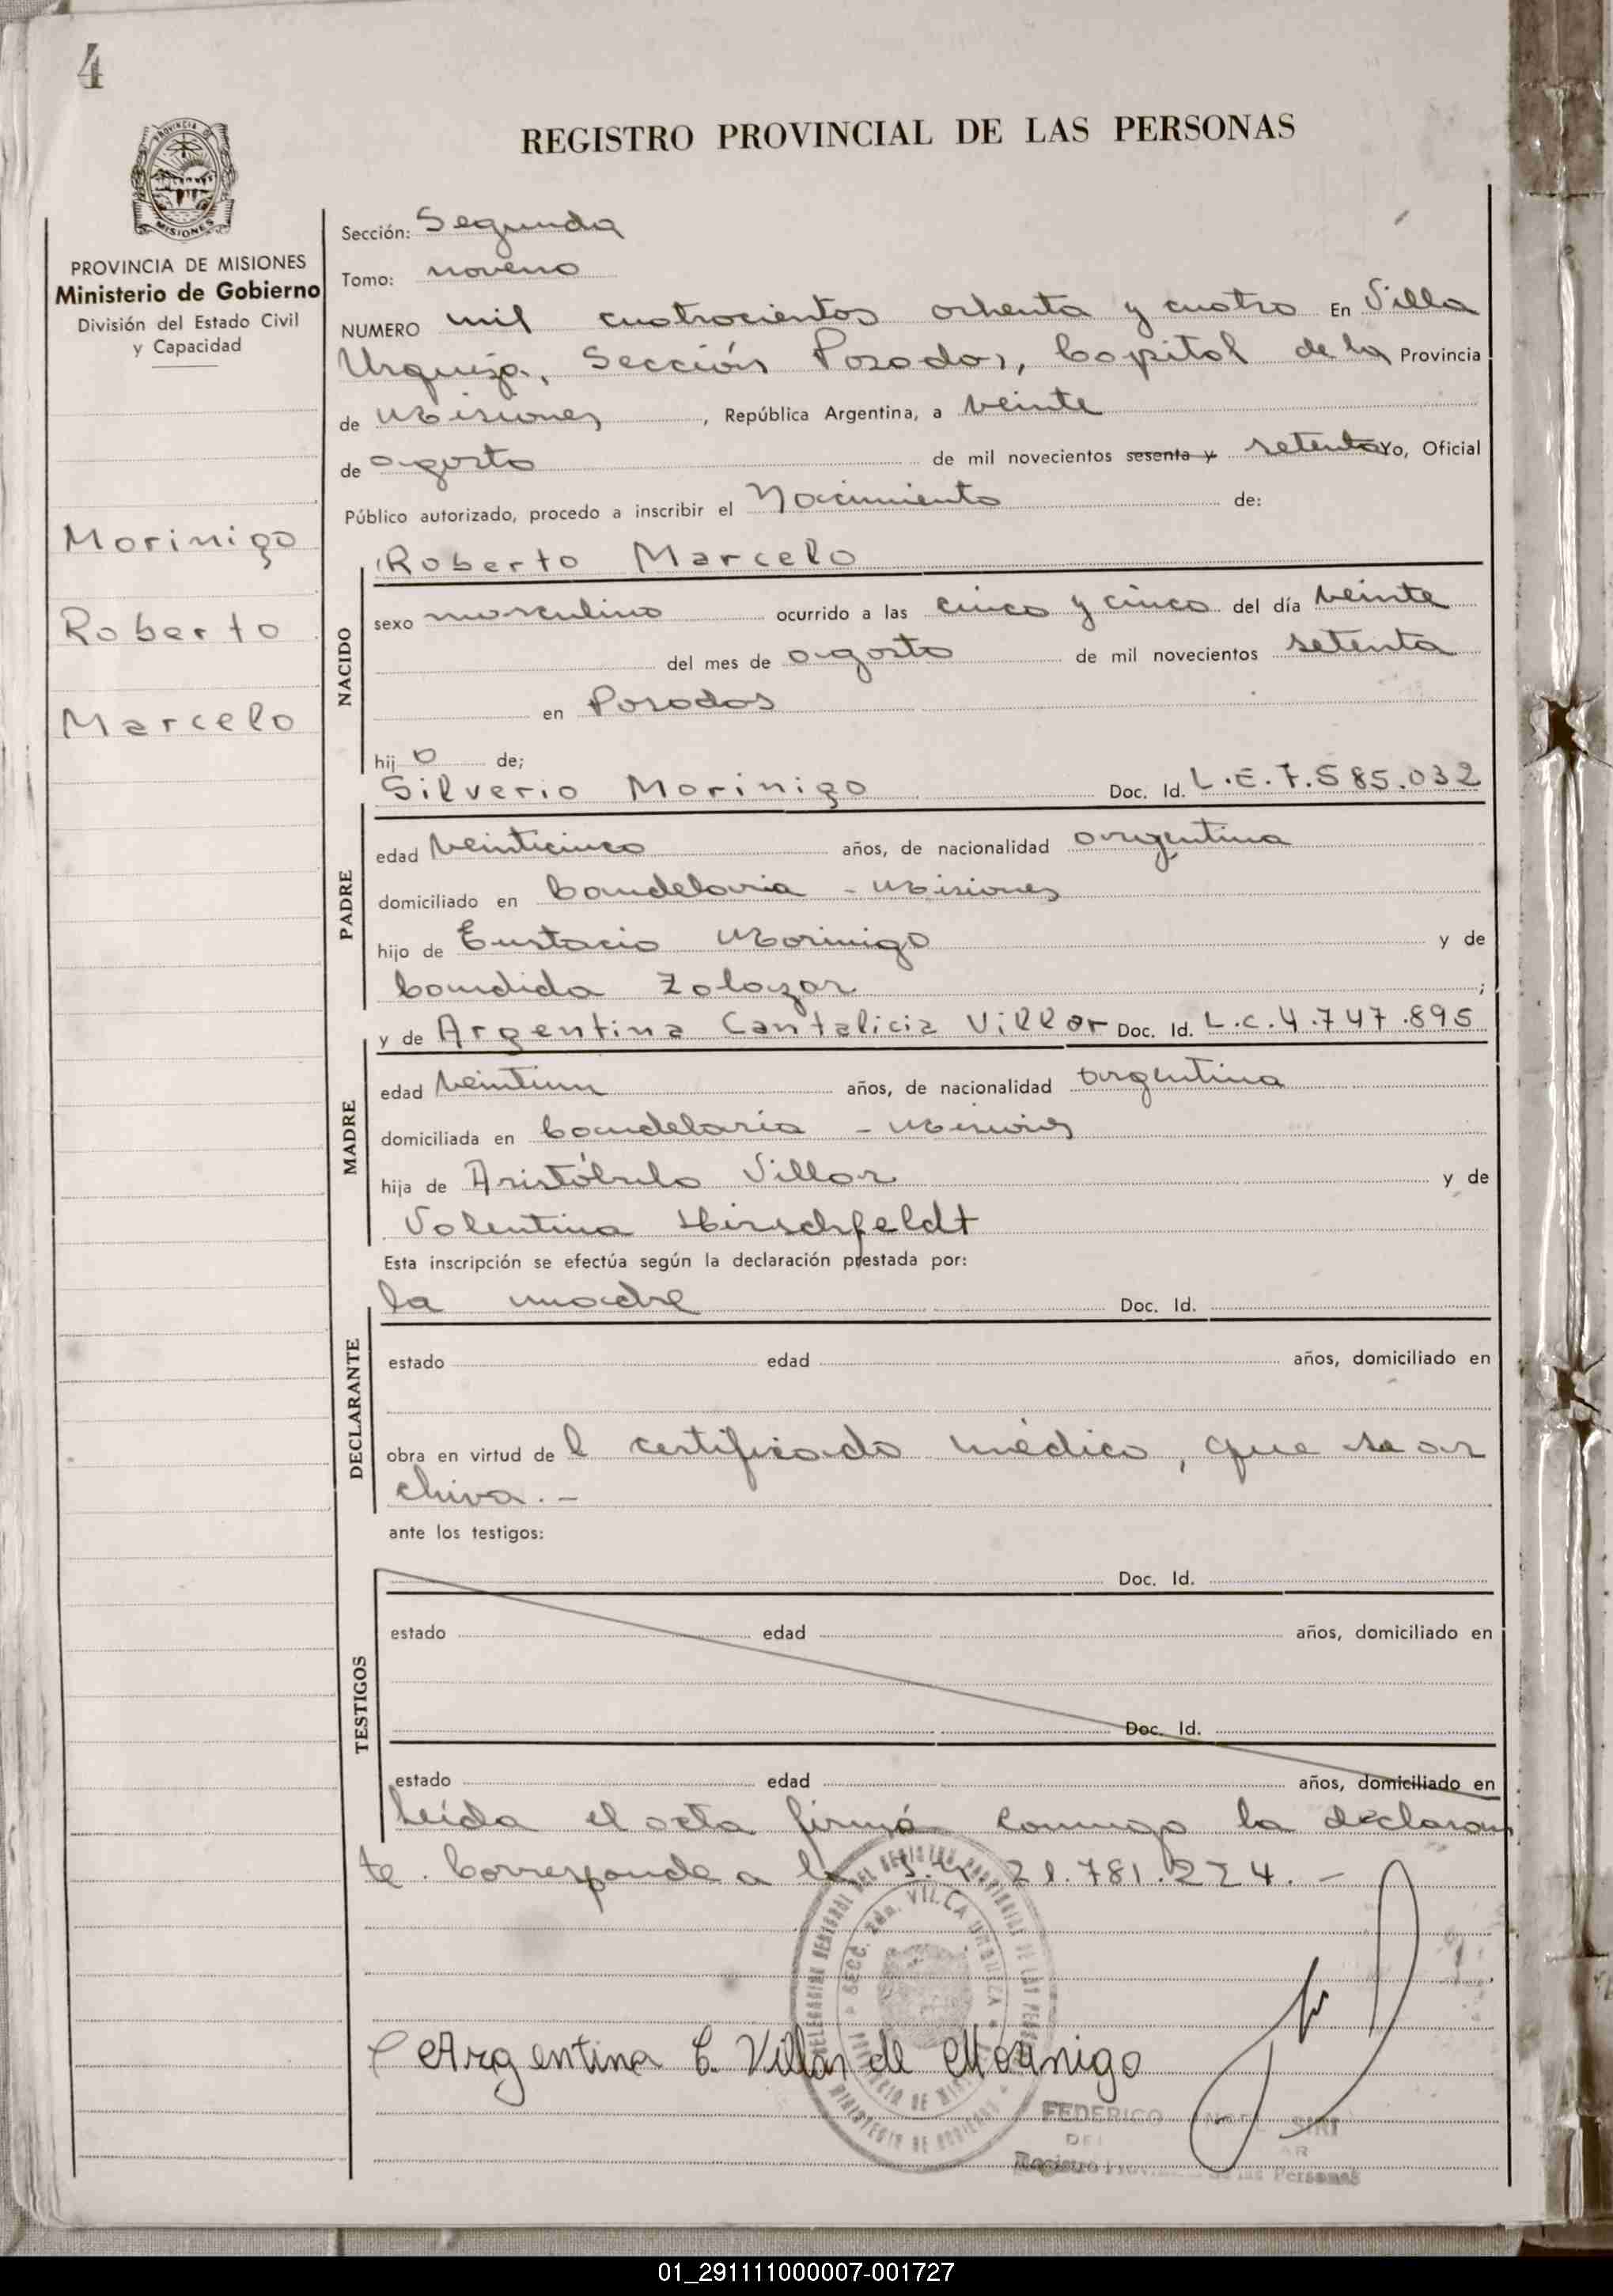 4
REGISTRO PROVINCIAL DE LAS PERSONAS
PROVINCIA DE MISIONES
Ministerio de Gobierno
División del Estado Civil
y Capacidad
Morinigo
Roberto
Marcelo
Sección: Segunda
Tomo: noveno
NUMERO mil cuatrocientos ochenta y cuatro En Villa
Urquiza, Sección Posadas, Capital de la Provincia
de Misiones, República Argentina, a veinte
de agosto de mil novecientos sesenta y setenta Yo, Oficial
Público autorizado, procedo a inscribir el Nacimiento de:
NACIDO
Roberto Marcelo
sexo masculino ocurrido a las cinco y cinco del día veinte
del mes de agosto de mil novecientos setenta
en Posadas
hijo de;
PADRE
Silverio Morinigo Doc. Id. L.E.7.585.032
edad veinticinco años, de nacionalidad argentina
domiciliado en Candelaria - Misiones
hijo de Eustacio Morinigo y de
Candida Zalazar ;
MADRE
y de Argentina Cantalicia Villar Doc. Id. L.C.4.747.895
edad veintiun años, de nacionalidad argentina
domiciliada en Candelaria - Misiones
hija de Aristóbulo Villar y de
Valentina Hirschfeldt
Esta inscripción se efectúa según la declaración prestada por:
DECLARANTE
la madre Doc. Id.
estado edad años, domiciliado en
obra en virtud del certificado médico, que se ar
chiva. -
ante los testigos:
TESTIGOS
Doc. Id.
estado edad años, domiciliado en
Doc. Id.
estado edad años, domiciliado en
Leída el acta firmá conmigo la declaran
te. Corresponde a la 21.781.224. -
DELEGACION REGISTRO PROVINCIAL DE LAS
SECC. 2da. VILLA URQUIZA
PROVINCIA DE MISIONES
MINISTERIO DE GOBIERNO
Argentina C. Villar de Morinigo
FEDERICO SIRI
Registro Provincial de las Personas
01_291111000007-001727